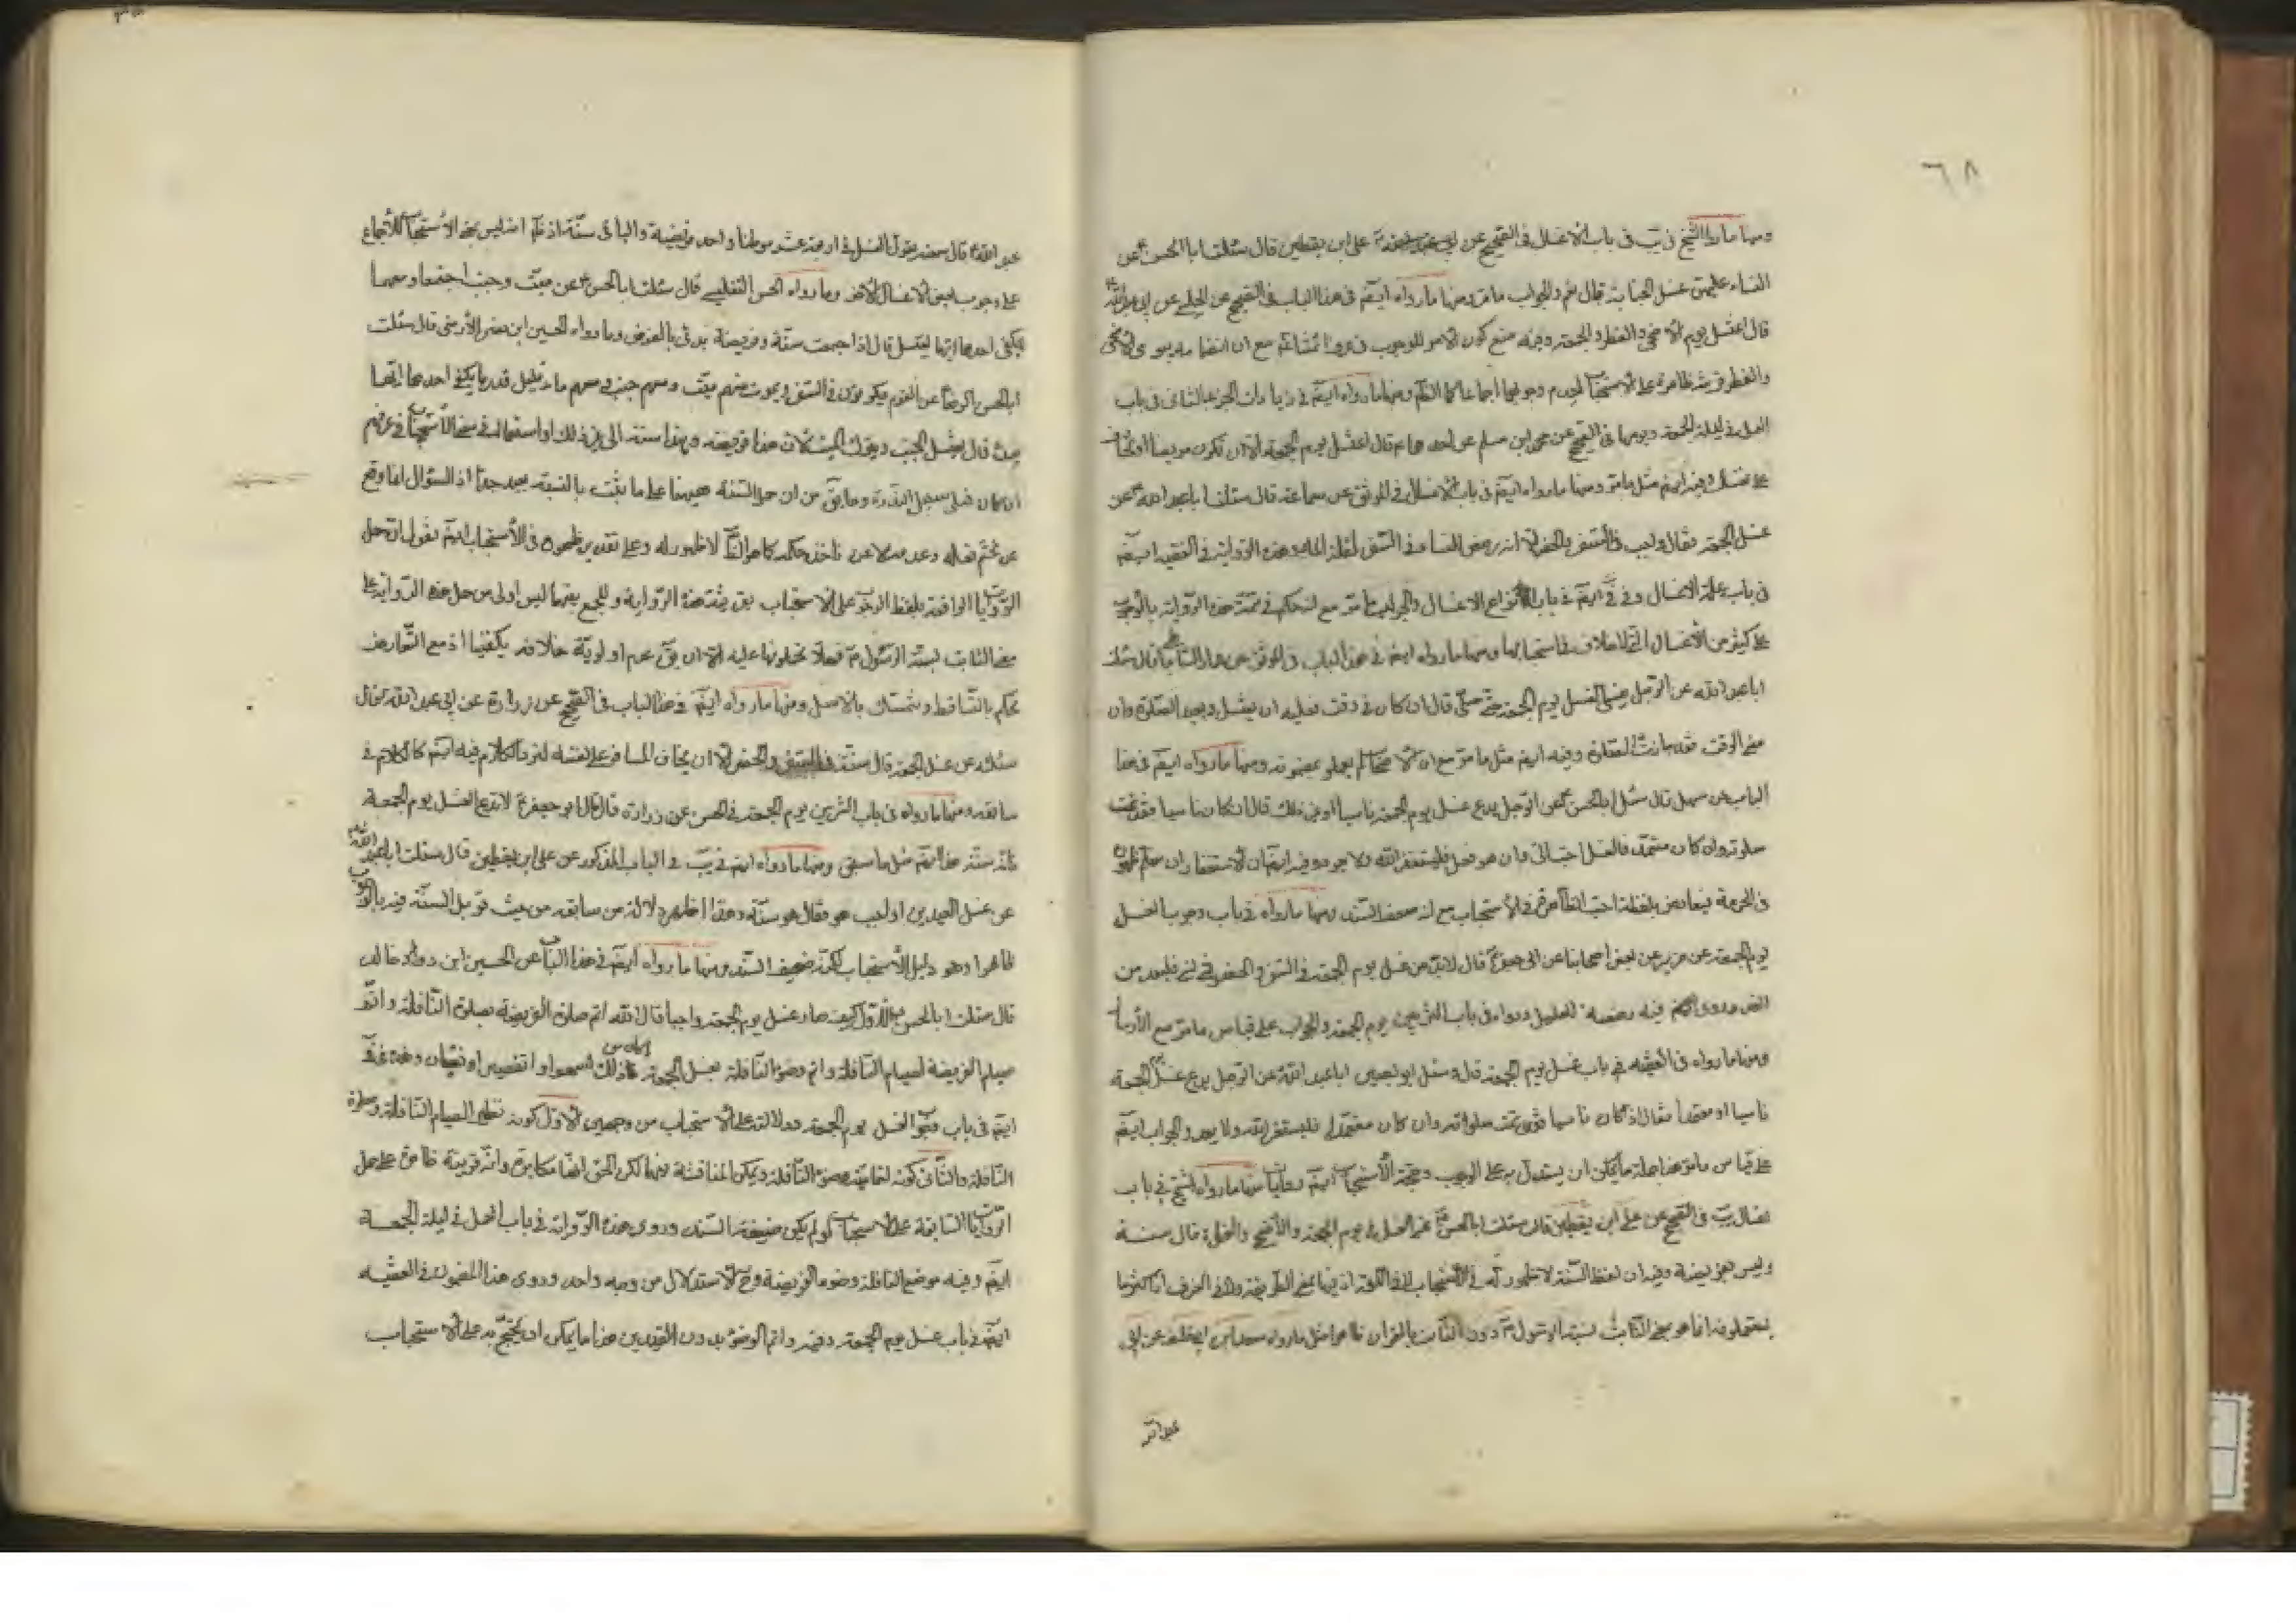 ٦٨
ومنها ما رواه الشيخ في يب في باب الاغسال في الصحيح عن علي ابن يقطين قال سئلت ابا الحسن ع عن
النساء عليهن غسل الجنابة قال نعم والجواب ما مر ومنها ما رواه ايضا في هذا الباب في الصحيح عن الحلبي عن ابي عبد الله ع
قال اغتسل يوم الاضحى والفطر والجمعة وفيه منع كون الامر للوجوب في مع ان انضمامه بيومي الاضحى
والفطر قرينة ظاهرة على الاستحباب لعدم وجوبهما اجماعا كما الظم ومنها ما رواه ايضا في زيادات الجزء الثاني في باب
العمل في ليلة الجمعة ويومها في الصحيح عن محمد ابن مسلم عن احدهما ع قال اغتسل يوم الجمعة الا ان تكون مريضا او تخاف
على نفسك وفيه ايضا مثل ما مر ومنها ما رواه ايضا في باب الاغسال في الموثق عن سماعة قال سئلت ابا عبد الله ع عن
غسل الجمعة فقال واجب في السفر والحضر الا انه رخص للنساء في السفر لقلة الماء وهذه الرواية في الفقيه ايضا
في باب علة الاغسال وفي في ايضا في باب انواع الاغسال والجواب ما مر مع انه حكم في تتمة هذه الرواية بالوجوب
على كثير من الأغسال التي لا خلاف في استحبابها ومنها ما رواه ايضا في هذا الباب في الموثق عن عمار الساباطي قال سئلت
ابا عبد الله عن الرجل ينسى الغسل يوم الجمعة حتى صلى قال ان كان في وقت فعليه ان يغتسل ويعيد الصلوة وان
مضى الوقت فقد جازت الصلوة وفيه ايضا مثل ما مر مع ان الاصحاب لم يعملو بمضمونه ومنها ما رواه ايضا في هذا
الباب عن سهل قال سئل ابا الحسن ع عن الرجل يدع غسل يوم الجمعة ناسيا او غير ذلك قال ان كان ناسيا فقد تمت
صلوته وان كان متعمدا فالغسل احب الي وان هو فعل فليستغفر الله ولا يعود وفيه ايضا ان الاستغفار ان سلم ظهوره
في الحرمة فيعارض بلفظة احب الظاهرة في الاستحباب مع انه ضعيف السند ومنها ما رواه في باب وجوب الغسل
يوم الجمعة عن حريز عن بعض اصحابنا عن ابي جعفر ع قال لا بد من غسل يوم الجمعة في السفر والحضر فمن نسي فليعد من
الغد وروى فيه رخصة للعليل ورواه في باب التزيين يوم الجمعة والجواب على قياس ما مر مع الارسال
ومنها ما رواه في الفقيه في باب غسل يوم الجمعة قال وسئل ابو بصير ابا عبد الله ع عن الرجل يدع غسل يوم الجمعة
ناسيا او متعمدا فقال اذا كان ناسيا فقد تمت صلوته وان كان متعمدا فليستغفر الله ولا يعد والجواب ايضا
على قياس ما مر هذا جملة ما يمكن ان يستدل به على الوجوب وحجة الأستحباب ايضا روايات منها ما رواه الشيخ في باب
اغسال يب في الصحيح عن علي ابن يقطين قال سئلت ابا الحسن ع عن الغسل في يوم الجمعة والأضحى والفطر قال سنة
وليس بفريضة وفيه ان لفظ السنة لا ظهور له في الأستحباب
يستعملونه انما هو بمعنى الثابت بسنة الرسول ص دون الثابت بالقران كما هو مثل ما رواه سعد ابن ابي خلف عن ابي
عبد الله
عبد الله ع قال سمعته يقول الغسل في اربعة عشر موطنا واحد فريضة والباقي سنة اذ ظم انه ليس بمعنى الاستحباب للأجماع
على وجوب بعض الاغسال الاخر وما رواه الحسن التفليسي قال سئلت ابا الحسن ع عن ميت وجنب اجتمعا ومعهما
ما يكفي احدهما ايهما يغتسل قال اذا اجتمعت سنة وفريضة بدئ بالفرض وما رواه الحسين ابن نضر الأرمني قال سئلت
ابا الحسن الرضا ع عن القوم يكونون في السفر فيموت منهم ميت ومعهم جنب ومعهم ماء قليل قدر ما يكفي احدهما ايهما
يبدء به قال يغتسل الجنب ويترك الميت لان هذا فريضة وهذا سنة الى غير ذلك او استعماله في معنى الأستحباب في عرفهم
ان كان فعلى سبيل الندرة وما يق من ان حمل السنة هيهنا على ما يثبت بالسنة بعيد جدا اذ السؤال انما وقع
عن تحتم فعله وعدمه لا عن ماخذ حكمه كما هو الظم لا ظهور له وعلى تقدير ظهوره في الأستحباب ايضا نقول ان حمل
الروايات الواقعة بلفظ الوجوب على الاستحباب بقرينة هذه الرواية وللجمع بينهما ليس اولى من حمل هذه الرواية على
معنى الثابت بسنة الرسول ص فعلا تحملونها عليه الا ان يق عدم اولوية خلافه يكفينا اذ مع التعارض
نحكم بالتساقط ونتمسك بالاصل ومنها ما رواه ايضا في هذا الباب في الصحيح عن زرارة عن ابي عبد الله ع قال
سئلته عن غسل الجمعة قال سنة في السفر والحضر الا ان يخاف المسافر على نفسه القر والكلام فيه ايضا كالكلام في
سابقه ومنها ما رواه في باب التزيين يوم الجمعة في الحسن عن زرارة قال قال ابو جعفر ع لا تدع الغسل يوم الجمعة
فانه سنة هذا ايضا مثل ما سبق ومنها ما رواه ايضا في يب في الباب المذكور عن علي ابن يقطين قال سئلت ابا عبد الله ع
عن غسل العيدين اواجب هو فقال هو سنة وهذا اظهر دلالة من سابقه من حيث قوبل السنة فيه بالوجوب
ظاهرا وهو دليل الأستحباب لكنه ضعيف السند ومنها ما رواه ايضا في هذا الباب عن الحسين ابن خالد
قال سئلت ابا الحسن الأول كيف صار غسل يوم الجمعة واجبا قال ان الله اتم صلوة الفريضة بصلوة النافلة واتم
صيام الفريضة بصيام النافلة واتم وضوء النافلة بغسل الجمعة ما كان من ذلك من سهو او تقصير او نقصان وهذه في
ايضا في باب وجوب الغسل يوم الجمعة ودلالته على الاستحباب من وجهين الاول كونه نظير الصيام النافلة وصلوة
النافلة والثاني كونه متمما لوضوء النافلة ويمكن المناقشة فيهما لكن الحق انها مكابرة وانه قرينة ظاهرة على حمل
الروايات السابقة على الاستحباب لو لم يكن ضعيفة السند وروى هذه الرواية في باب العمل في ليلة الجمعة
ايضا وفيه موضع النافلة وضوء الفريضة وح الاستدلال من وجه واحد وروى هذا المضمون في الفقيه
ايضا في باب غسل يوم الجمعة وفيه واتم الوضوء بدون القيدين هذا ما يمكن ان يحتج به على الاستحباب